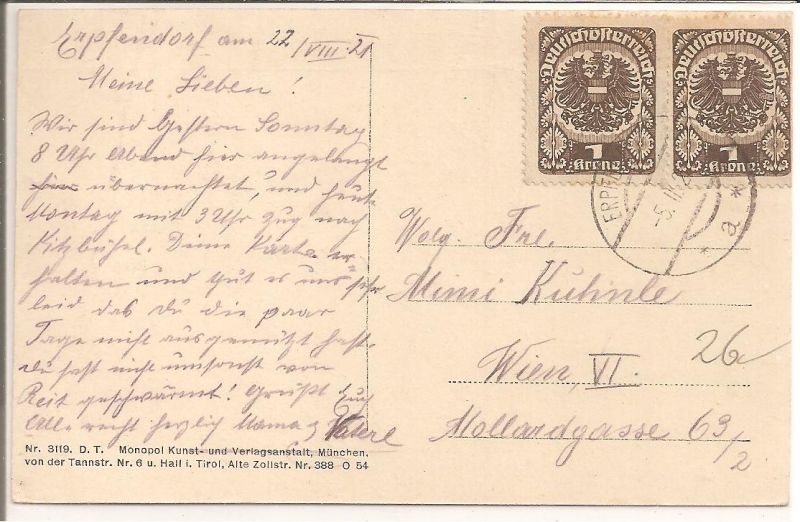 Erpfendorf am 22/VIII.21
Meine Lieben!
Wir sind Gestern Sonntag
8 Uhr Abend hier angelangt
hier übernachtet, und heute
Montag mit 3 Uhr Zug nach
Kitzbühel. Deine Karte er-
halten und tut es uns sehr
leid das du die paar
Tage nicht ausgenützt hast,
du hast nicht umsonst von
Reit geschwärmt! Grüßt Euch
Alle recht herzlich Mama & Vaterl
Nr. 3119. D. T. Monopol Kunst- und Verlagsanstalt, München,
von der Tannstr. Nr. 6 u. Hall i. Tirol, Alte Zollstr. Nr. 388 O 54
Deutschösterreich
1
Krone
Deutschösterreich
1
Krone
ERPFE
* a *
Wolg. Frl.
Mimi Kühnle
Wien, VI.
26
Mollardgasse 63/2